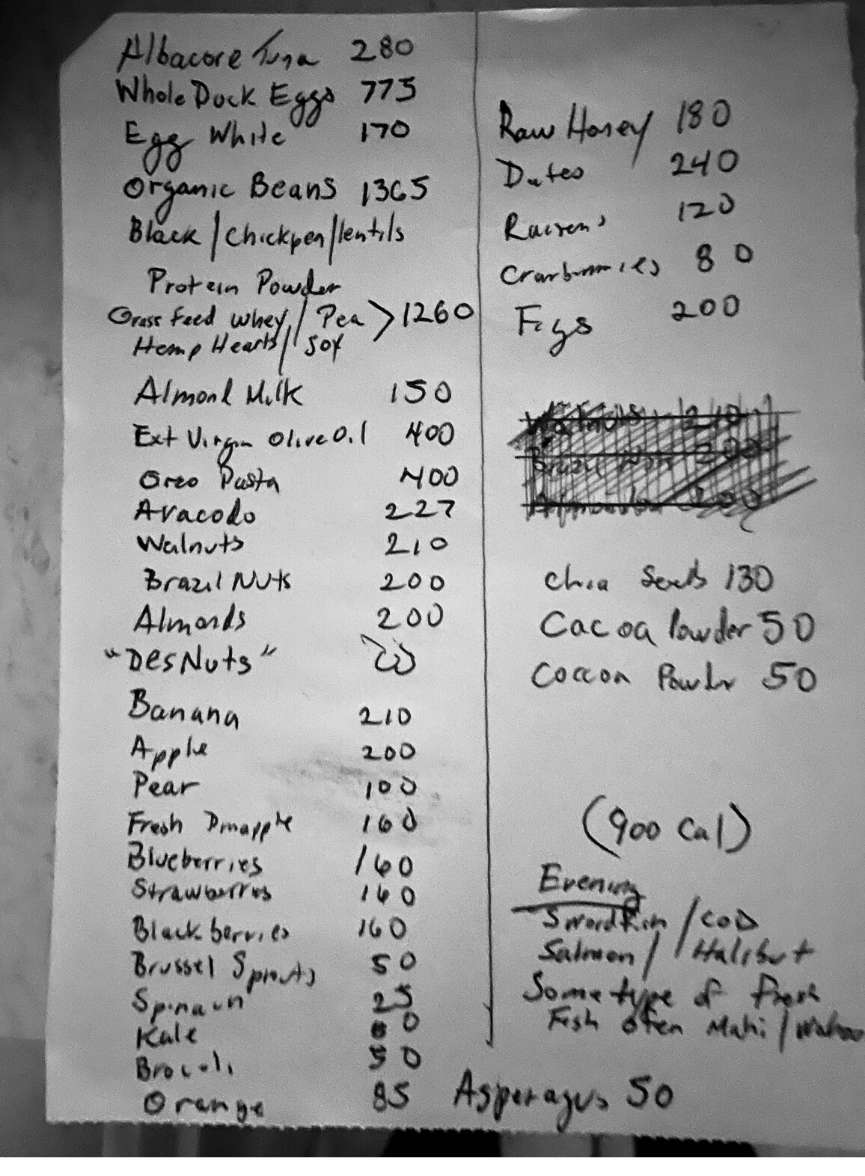 Albacore Tuna 280
Whole Duck Eggs 775
Egg White 170
Organic Beans 1365
Black / Chickpea / lentils
Protein Powder
Grass Feed Whey / Pea > 1260
Hemp Hearts / Soy
Almond Milk 150
Ext Virgin Olive Oil 400
Oreo Pasta 400
Avacodo 227
Walnuts 210
Brazil Nuts 200
Almonds 200
"Des Nuts"
Banana 210
Apple 200
Pear 100
Fresh 160
Blueberries 160
Strawberries 160
Blackberries 160
Brussel Sprouts 50
25
Kale
50
Orange 85
Raw Honey 180
Dates 240
120
80
Figs 200
Walnuts 210
Brazil Nuts 200
Almonds 200
Chia Seeds 130
Cacoa Powder 50
Powder 50
(900 Cal)
Evening
/ COD
Salmon / Halibut
Some type of fresh
Fish often Mahi / Wahoo
Asperagus 50